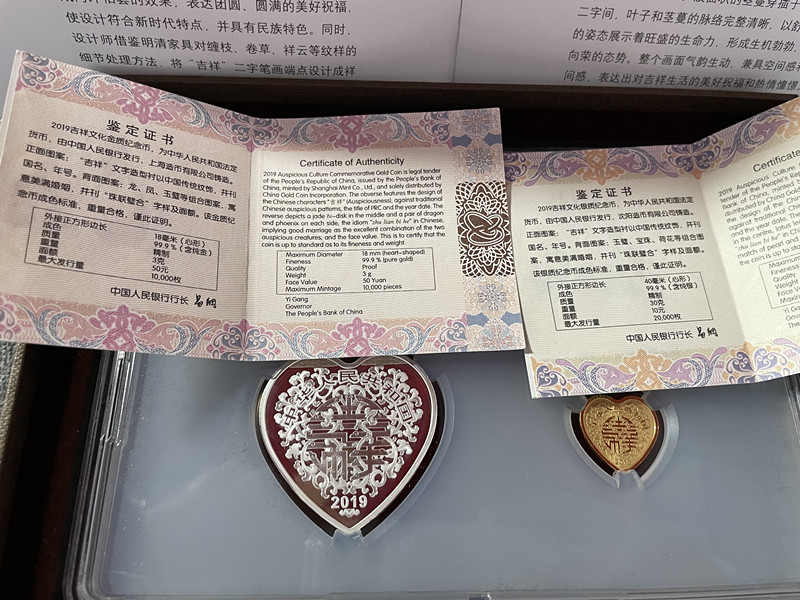 的效果，表达团圆、圆满的美好祝福，
使设计符合新时代特点，并具有民族特色。同时，
设计师借鉴明清家具对缠枝、卷草、祥云等纹样的
细节处理方法，将“吉祥”二字笔画端点设计成祥
二字间，叶子和茎蔓的脉络完整清晰，以舒
的姿态展示着旺盛的生命力，形成生机勃勃、
向荣的态势。整个画面气韵生动，兼具空间感和
间感，表达出对吉祥生活的美好祝福和热情憧憬
鉴定证书
2019吉祥文化金质纪念币，为中华人民共和国法定
货币，由中国人民银行发行，上海造币有限公司铸造。
正面图案：“吉祥”文字造型衬以中国传统纹饰，并刊
国名、年号。背面图案：龙、凤、玉璧等组合图案，寓
意美满婚姻，并刊“珠联璧合”字样及面额。该金质纪
念币成色标准，重量合格，谨此证明。
外接正方形边长 18毫米（心形）
成色 99.9%（含纯金）
质量 精制
重量 3克
面额 50元
最大发行量 10,000枚
中国人民银行行长
Certificate of Authenticity
2019 Auspicious Culture Commemorative Gold Coin is legal tender
of the People's Republic of China, issued by the People's Bank of
China, minted by Shanghai Mint Co., Ltd., and solely distributed by
China Gold Coin Incorporation. The obverse features the design of
the Chinese characters "吉祥" (Auspiciousness), against traditional
Chinese auspicious patterns, the title of PRC and the year date. The
reverse depicts a jade bi–disk in the middle and a pair of dragon
and phoenix on each side, the idiom "zhu lian bi he" in Chinese,
implying good marriage as the excellent combination of the two
auspicious creatures, and the face value. This is to certify that the
coin is up to standard as to its fineness and weight.
Maximum Diameter 18 mm (heart-shaped)
Fineness 99.9 % (pure gold)
Quality Proof
Weight 3 g
Face Value 50 Yuan
Maximum Mintage 10,000 pieces
Yi Gang
Governor
The People's Bank of China
鉴定证书
2019吉祥文化银质纪念币，为中华人民共和国法定
货币，由中国人民银行发行，沈阳造币有限公司铸造。
正面图案：“吉祥”文字造型衬以中国传统纹饰，并刊
国名、年号。背面图案：玉璧、宝珠、荷花等组合图
案，寓意美满婚姻，并刊“珠联璧合”字样及面额。
该银质纪念币成色标准，重量合格，谨此证明。
外接正方形边长 40毫米（心形）
成色 99.9%（含纯银）
质量 精制
重量 30克
面额 10元
最大发行量 20,000枚
中国人民银行行长
Certificate
2019 Auspicious Culture
of the People's
Bank of China, minted
distributed by China Gold
the design of
against traditional
and the year date.
the middle, lotus
"zhu lian bi he"
match of pearl and
the coin is up to
Maximum
Fineness
Quality
Weight
Face Value
Maximum
Yi Gang
Governor
The People's
中华人民共和国
吉祥
2019
吉祥